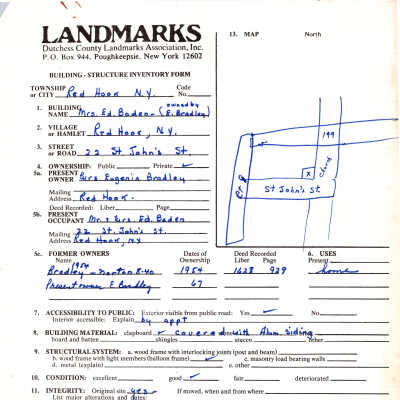 LANDMARKS
Dutchess County Landmarks Association, Inc.
P.O. Box 944, Poughkeepsie, New York 12602
BUILDING - STRUCTURE INVENTORY FORM
TOWNSHIP or CITY Red Hook N.Y. Code No.
1. BUILDING NAME Mrs. Ed. Baden - (owned by E. Bradley)
2. VILLAGE or HAMLET Red Hook, N.Y.
3. STREET or ROAD 22 St John's St.
4. OWNERSHIP: Public Private ✓
5a. PRESENT OWNER Mrs Eugenia Bradley
Mailing Address Red Hook -
Deed Recorded: Liber Page
5b. PRESENT OCCUPANT Mr. & Mrs. Ed. Baden
Mailing 22 St. John's St.
Address Red Hook, NY
13. MAP North
199
Church
X
St John's St
Rt 9
5c. FORMER OWNERS Dates of Deed Recorded 6. USES
Name Ownership Liber Page Present home
1954
Bradley - Norton 8-40 1954 1628 929
Present owner E Bradley 67
7. ACCESSIBILITY TO PUBLIC: Exterior visible from public road: Yes ✓ No
Interior accessible: Explain by appt
8. BUILDING MATERIAL: clapboard ✓ covered with Alum. Siding
board and batten shingles stucco other
9. STRUCTURAL SYSTEM: a. wood frame with interlocking joints (post and beam)
b. wood frame with light members (balloon frame) ✓ c. masonry load bearing walls
d. metal (explain) e. other
10. CONDITION: excellent good ✓ fair deteriorated
11. INTEGRITY: Original site yes If moved, when and from where
List major alterations and dates: